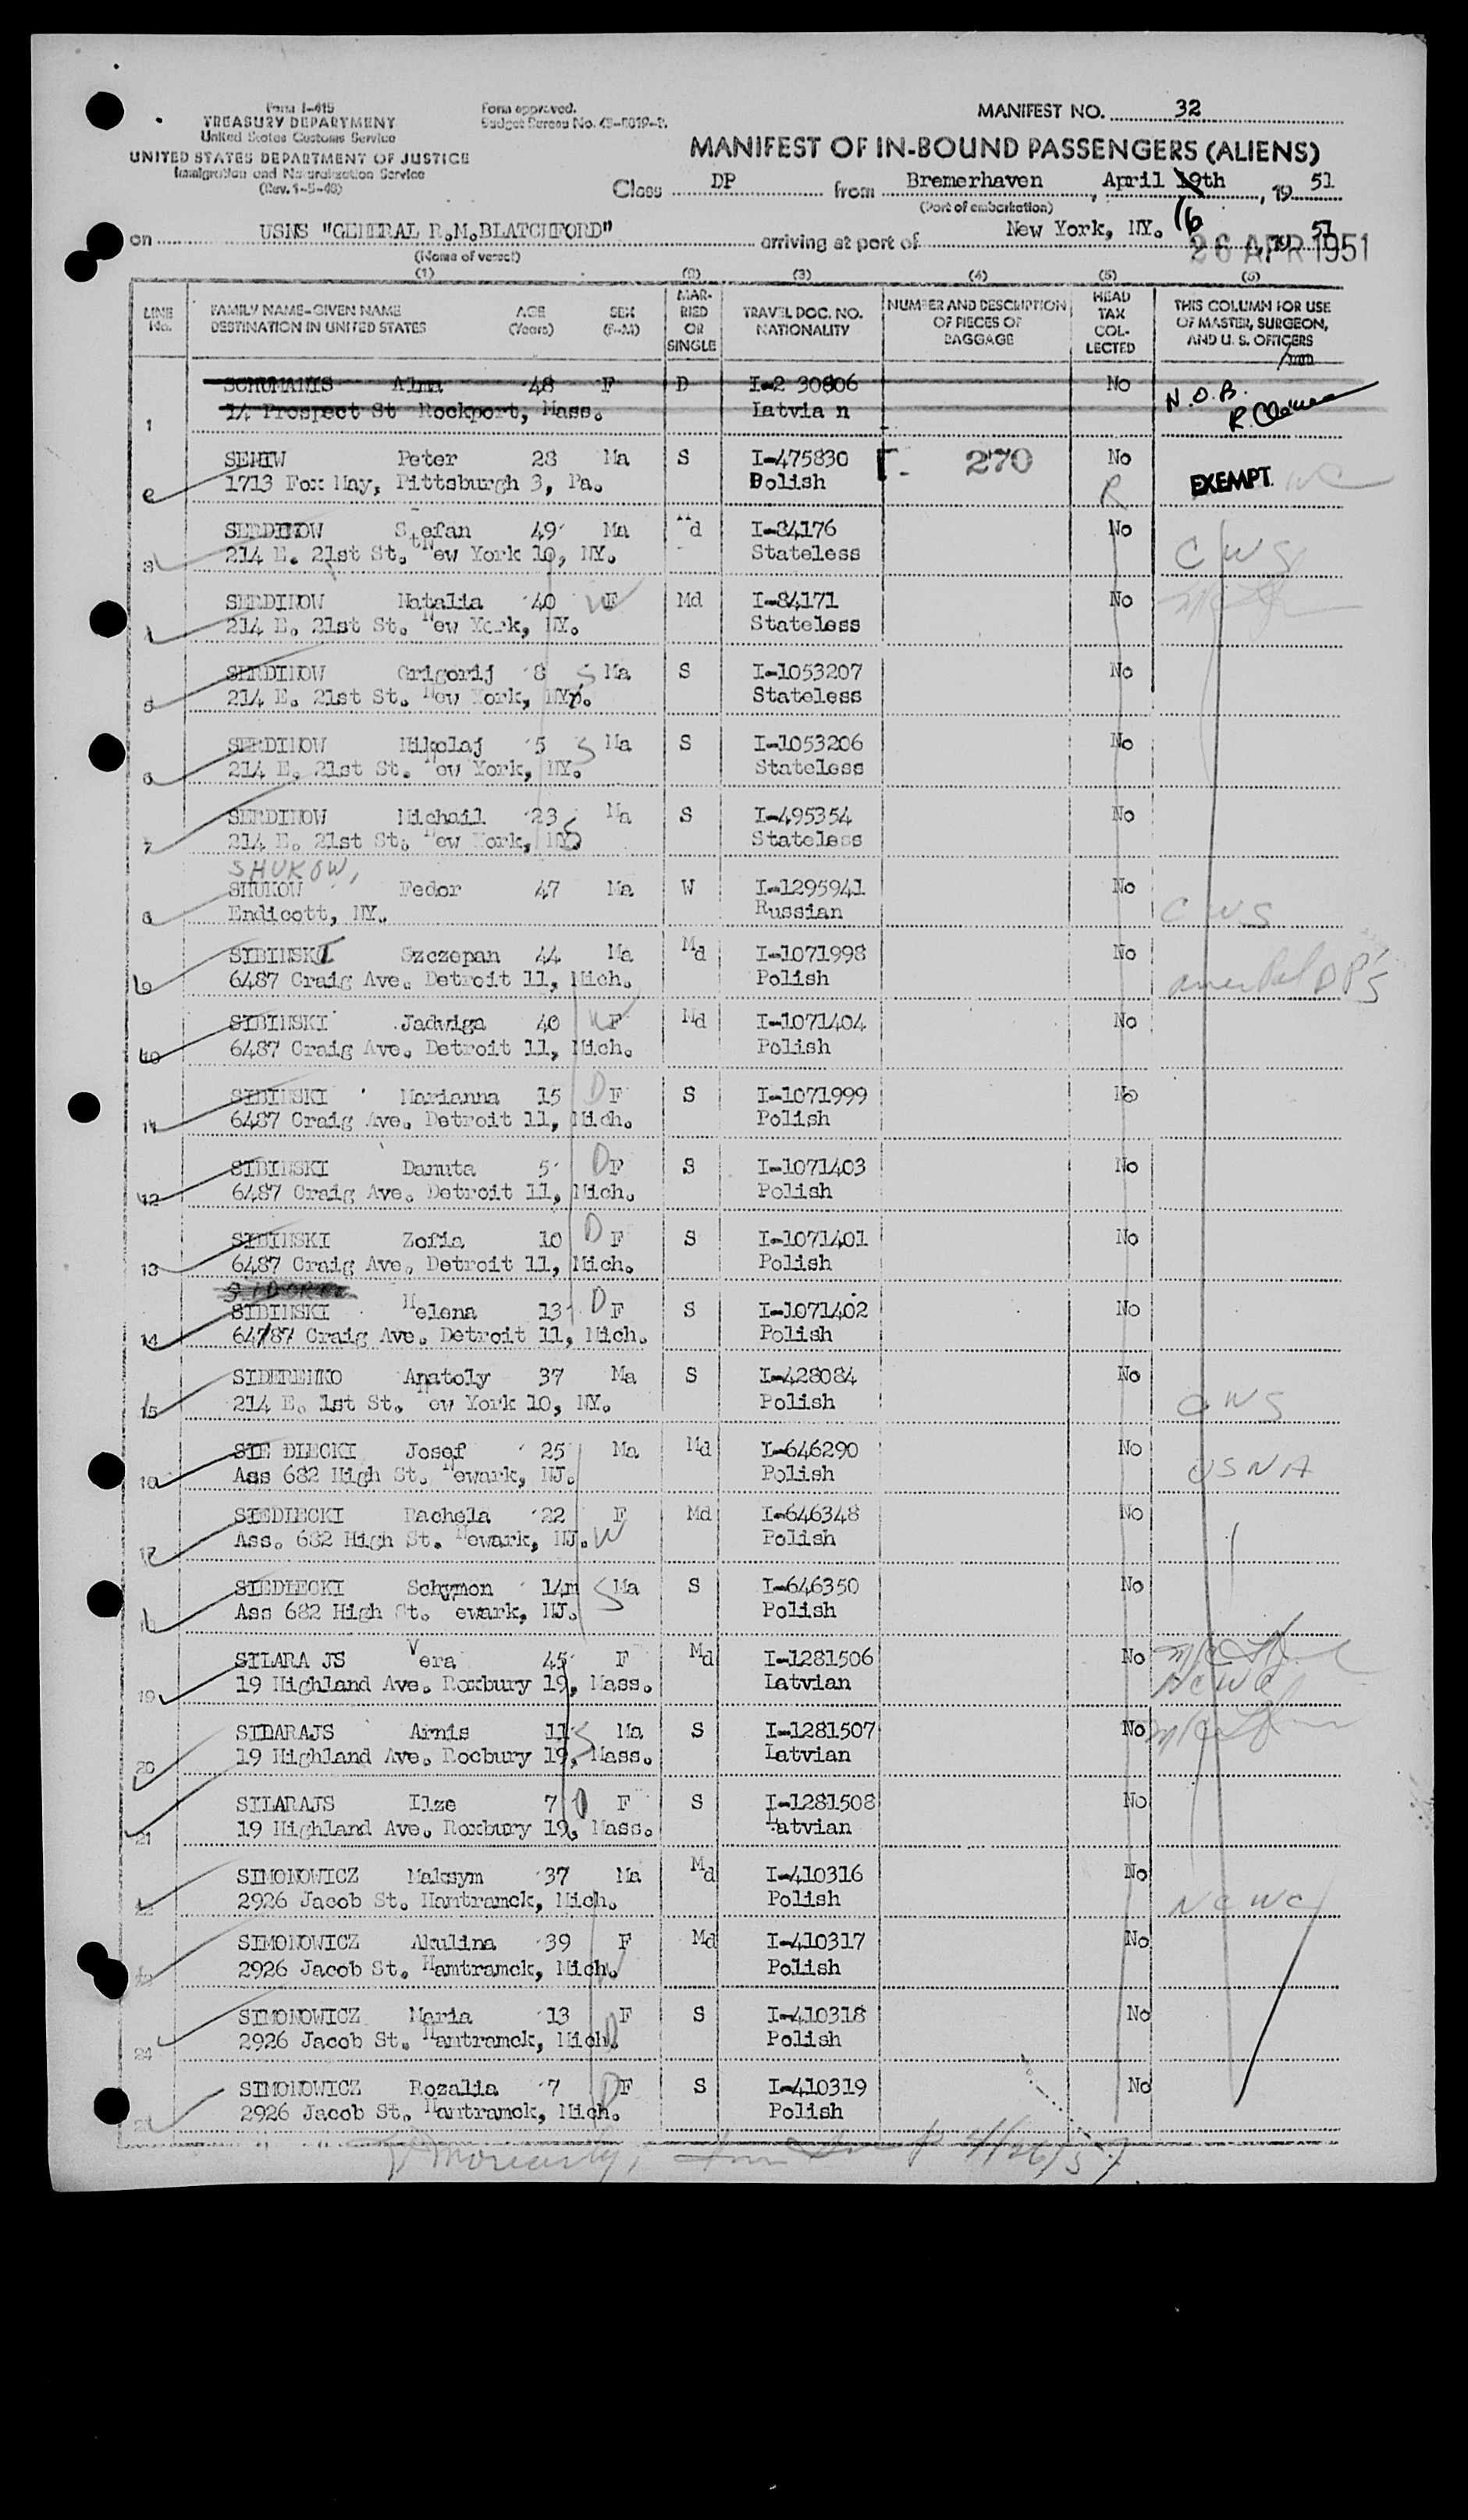 Form I-415
TREASURY DEPARTMENT
United States Customs Service
UNITED STATES DEPARTMENT OF JUSTICE
Immigration and Naturalization Service
(Rev. 1-5-48)
Form approved.
Budget Bureau No. 43-R019-2.
MANIFEST NO. 32
MANIFEST OF IN-BOUND PASSENGERS (ALIENS)
Class DP from Bremerhaven, April 19th, 1951
(Port of embarkation)
16
on USNS "GENERAL R.M.BLATCHFORD" arriving at port of New York, NY. 1951
26 APR 1951
(Name of vessel)
(1) (2) (3) (4) (5) (6)
LINE No. FAMILY NAME-GIVEN NAME DESTINATION IN UNITED STATES AGE (Years) SEX (F-M) MARRIED OR SINGLE TRAVEL DOC. NO. NATIONALITY NUMBER AND DESCRIPTION OF PIECES OF BAGGAGE HEAD TAX COLLECTED THIS COLUMN FOR USE OF MASTER, SURGEON, AND U. S. OFFICERS
SCHUMANIS Alma 48 F D I-2 30806 No N.O.B.
1 14 Prospect St Rockport, Mass. Latvia n
SEMIW Peter 28 Ma S I-475830 270 No
2 1713 Fox Way, Pittsburgh 3, Pa. Polish R EXEMPT
SERDINOW Stefan 49 Ma Md I-84176 No
3 214 E. 21st St. New York 10, NY. Stateless CWS
SERDINOW Natalia 40 W F Md I-84171 No
4 214 E. 21st St. New York, NY. Stateless
SERDINOW Grigorij 8 S Ma S I-1053207 No
5 214 E. 21st St. New York, NY. Stateless
SERDINOW Nikolaj 5 S Ma S I-1053206 No
6 214 E. 21st St. New York, NY. Stateless
SERDINOW Michail 23 S Ma S I-495354 No
7 214 E. 21st St. New York, NY. Stateless
SHUKOW,
SHUKOW Fedor 47 Ma W I-1295941 No
8 Endicott, NY. Russian CWS
SIBINSKI Szczepan 44 Ma Md I-1071998 No
9 6487 Craig Ave. Detroit 11, Mich. Polish Amer Pol DP's
SIBINSKI Jadwiga 40 W F Md I-1071404 No
10 6487 Craig Ave. Detroit 11, Mich. Polish
SIBINSKI Marianna 15 D F S I-1071999 No
11 6487 Craig Ave. Detroit 11, Mich. Polish
SIBINSKI Danuta 5 D F S I-1071403 No
12 6487 Craig Ave. Detroit 11, Mich. Polish
SIBINSKI Zofia 10 D F S I-1071401 No
13 6487 Craig Ave. Detroit 11, Mich. Polish
SIBINSKI Helena 13 D F S I-1071402 No
14 64/87 Craig Ave. Detroit 11, Mich. Polish
SIDERENKO Anatoly 37 Ma S I-428084 No
15 214 E. 1st St. New York 10, NY. Polish CWS
SIE DLECKI Josef 25 Ma Md I-646290 No
16 Ass 682 High St. Newark, NJ. Polish USNA
SIEDLECKI Rachela 22 F Md I-646348 No
17 Ass. 682 High St. Newark, NJ. W Polish
SIEDLECKI Schymon 14m S Ma S I-646350 No
18 Ass 682 High St. ewark, NJ. Polish
SILARA JS Vera 45 F Md I-1281506 No
19 19 Highland Ave. Roxbury 19, Mass. Latvian NCWC
SILARAJS Arnis 11 S Ma S I-1281507 No
20 19 Highland Ave. Rocbury 19, Mass. Latvian
SILARAJS Ilze 7 D F S I-1281508 No
21 19 Highland Ave. Roxbury 19, Mass. Latvian
SIMONOWICZ Maksym 37 Ma Md I-410316 No
22 2926 Jacob St. Hamtramck, Mich. Polish NCWC
SIMONOWICZ Akulina 39 F Md I-410317 No
23 2926 Jacob St. Hamtramck, Mich. W Polish
SIMONOWICZ Maria 13 F S I-410318 No
24 2926 Jacob St. Hamtramck, Mich. D Polish
SIMONOWICZ Rozalia 7 D F S I-410319 No
25 2926 Jacob St. Hamtramck, Mich. Polish
Moriarty, Imm Insp 4/26/51